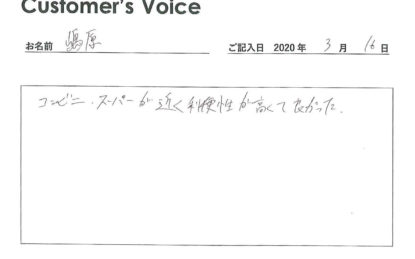 Customer's Voice
お名前 嶋原 ご記入日 2020 年 3 月 16 日
コンビニ・スーパーが近く利便性が高くて良かった.